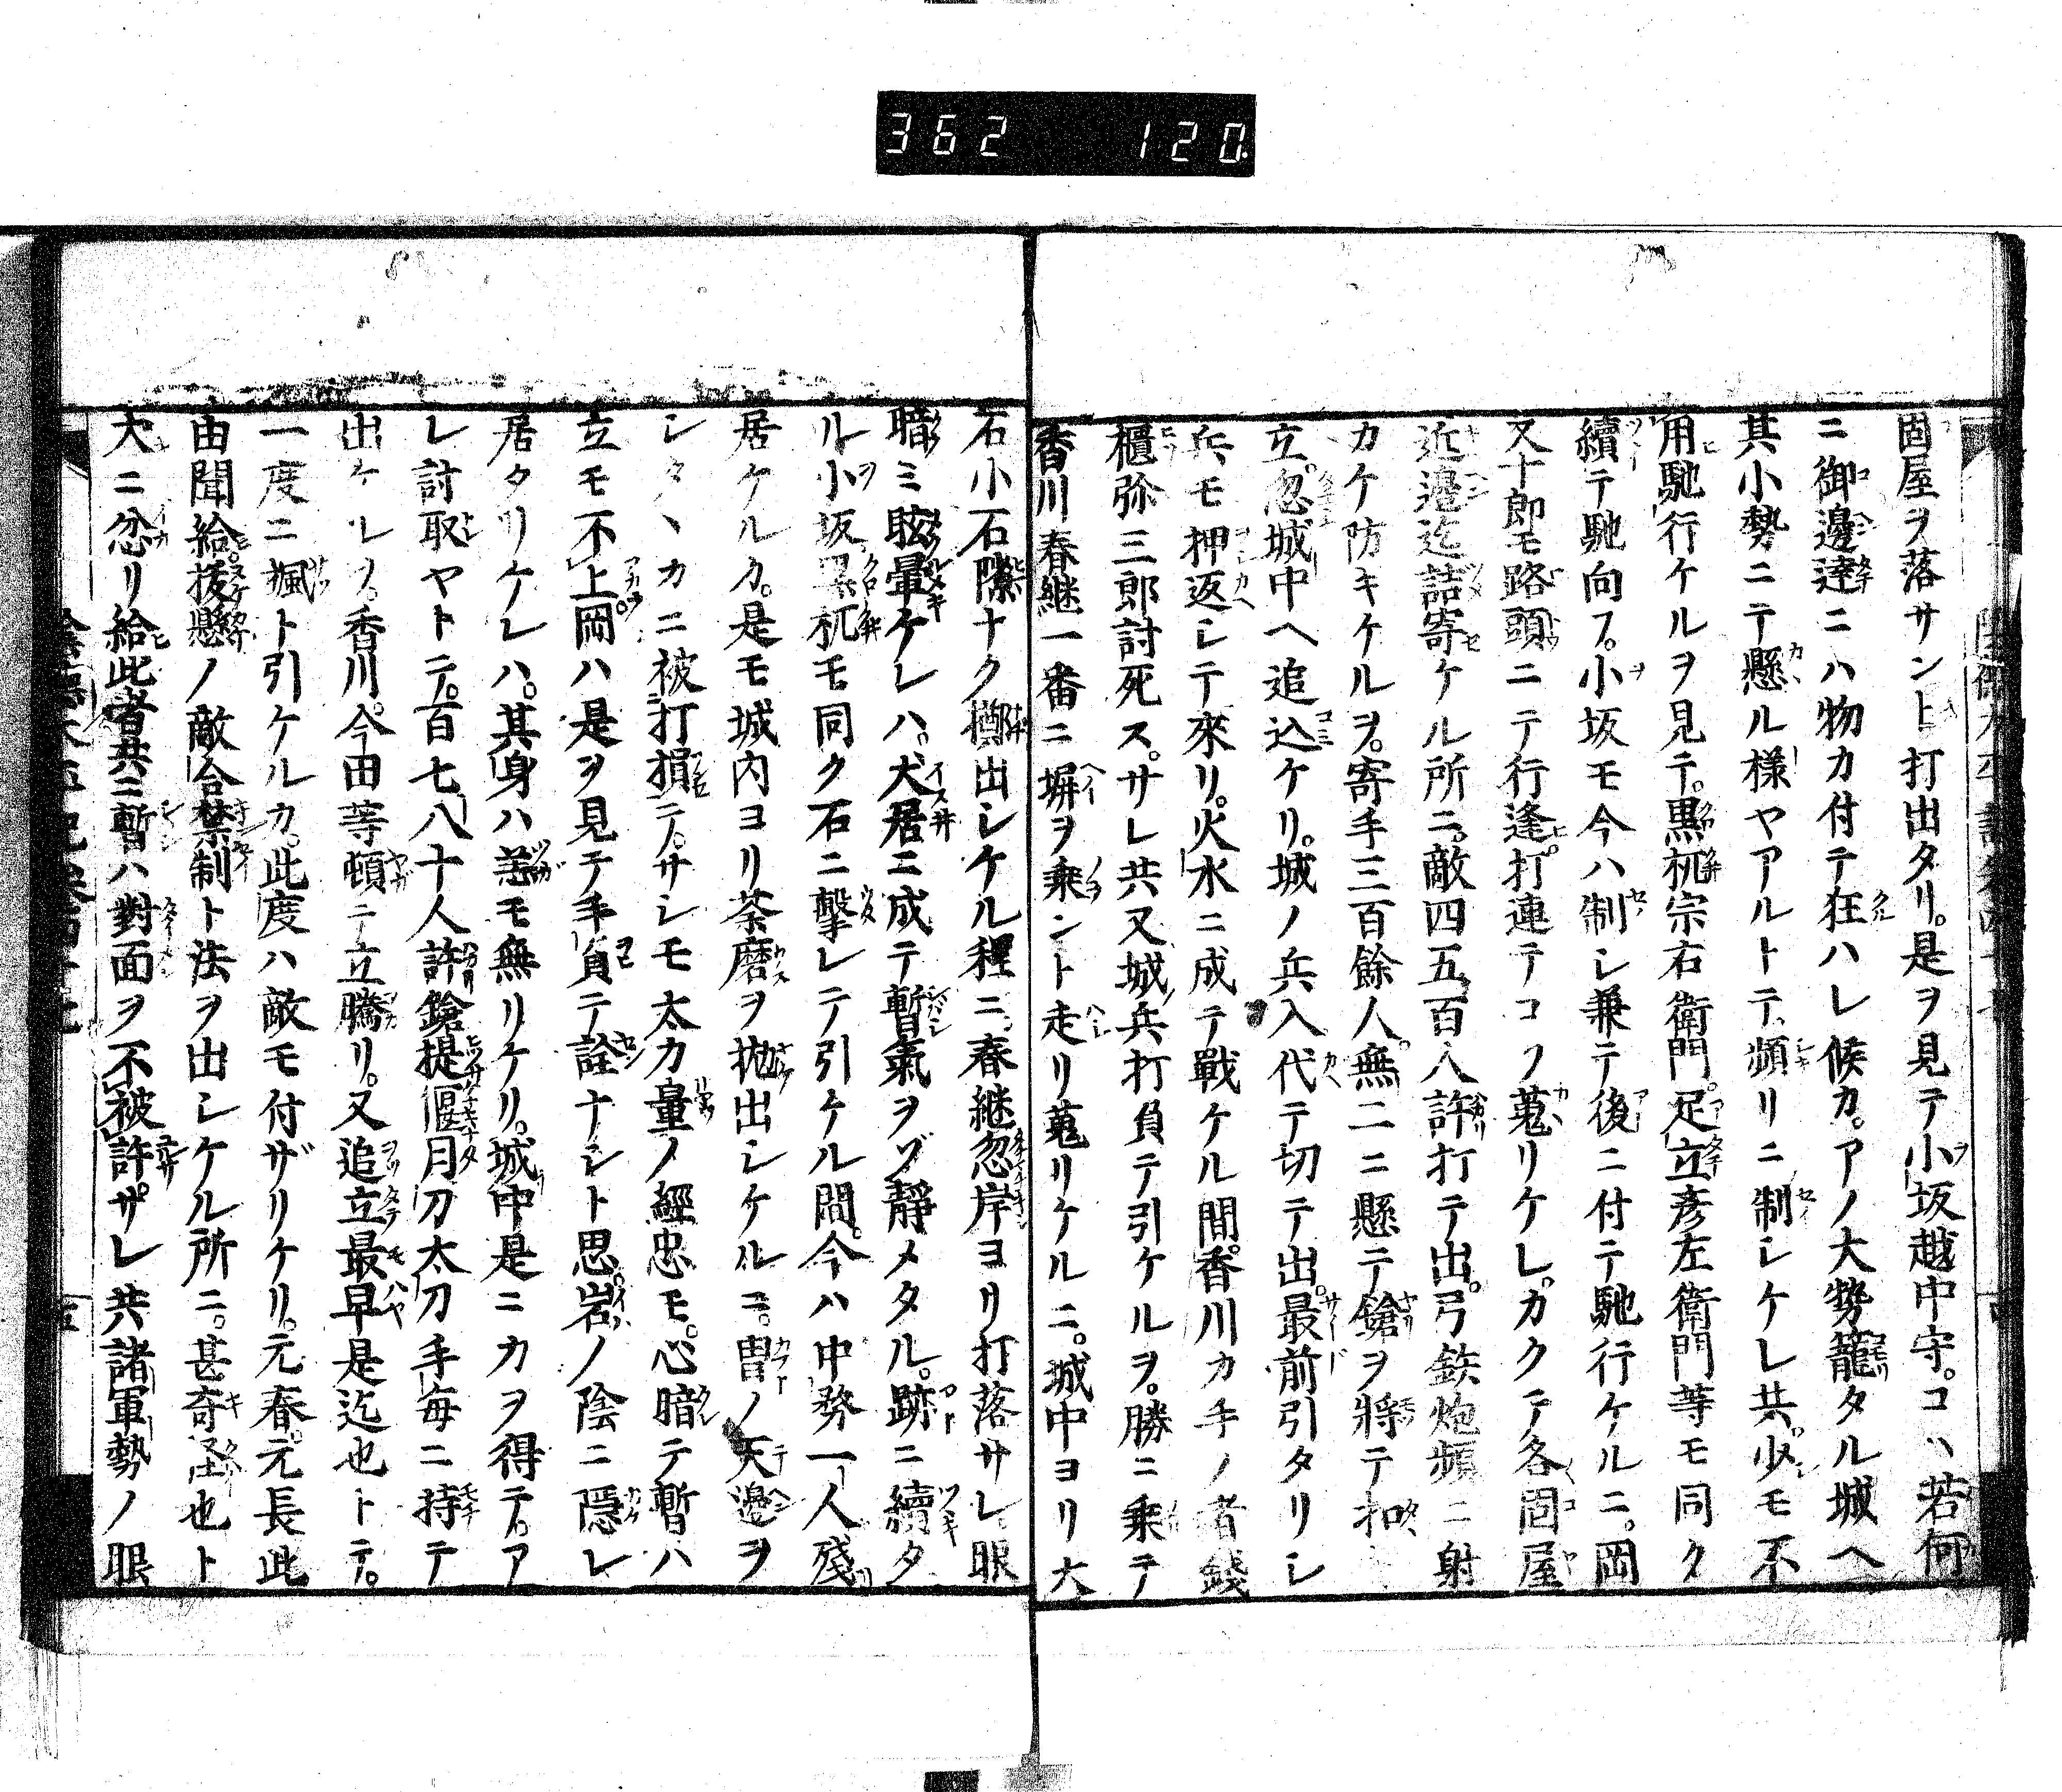 362 120
固屋ヲ落サント打出タリ。是ヲ見テ小坂越中守。コハ若何
ニ御邊達ニハ物カ付テ狂ハレ候カ。アノ大勢籠タル城ヘ
其小勢ニテ懸ル様ヤアルトテ。頻リニ制シケレ共。少モ不
用馳行ケルヲ見テ。黒杭宗右衛門。足立彦左衛門等モ同ク
續テ馳向フ。小坂モ今ハ制シ兼テ後ニ付テ馳行ケルニ。岡
又十郎モ路頭ニテ行逢。打連テコソ蒐リケレ。カクテ各固屋
近邊迄詰寄ケル所ニ。敵四五百人許打テ出。弓鉄炮頻ニ射
カケ防キケルヲ。寄手三百餘人。無二ニ懸テ鎗ヲ將テ扣
立。忽城中ヘ追込ケリ。城ノ兵入代テ切テ出。最前引タリシ
兵モ押返シテ來リ。火水ニ成テ戰ケル間。香川カ手ノ者錢
櫃弥三郎討死ス。サレ共又城兵打負テ引ケルヲ。勝ニ乘テ
香川春継一番ニ塀ヲ乘ント走リ蒐リケルニ。城中ヨリ大
石小石隙ナク擲出シケル程ニ。春継忽岸ヨリ打落サレ。眼
暗ミ眩暈ケレハ。犬居ニ成テ暫氣ヲゾ靜メタル。跡ニ續タ
ル小坂黒杭モ同ク石ニ撃レテ引ケル間。今ハ中務一人殘
居ケルカ。是モ城内ヨリ茶磨ヲ抛出シケルニ。冑ノ天邊ヲ
シタヽカニ被打損テ。サシモ太力量ノ經忠モ。心暗テ暫ハ
立モ不上。岡ハ是ヲ見テ手負テ詮ナシト思。岩ノ陰ニ隱レ
居タリケレハ。其身ハ恙モ無リケリ。城中是ニカヲ得テ。ア
レ討取ヤトテ。百七八十人許鎗提偃月刀太刀手毎ニ持テ
出ケレハ。香川。今田等頓テ立騰リ。又追立最早是迄也トテ。
一度ニ颯ト引ケルカ。此度ハ敵モ付ザリケリ。元春。元長此
由聞給。拔懸ノ敵合禁制ト法ヲ出シケル所ニ。甚奇怪也ト
大ニ忿リ給此者共ニ暫ハ對面ヲ不被許ザレ共諸軍勢ノ眼